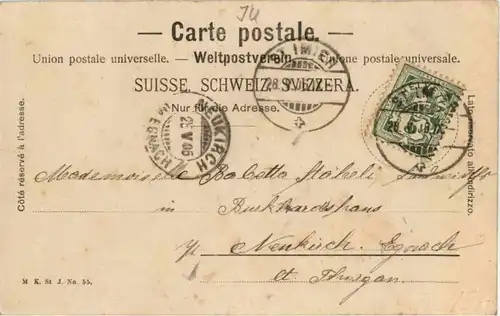 JU
— Carte postale. —
Union postale universelle. — Weltpostverein. — Unione postale universale.
SUISSE. SCHWEIZ. SVIZZERA.
Nur für die Adresse.
ST. IMIER
NEUKIRCH
EGNACH
Côté réservé à l'adresse.
Lato riservato all'indirizzo.
Mademoiselle Babetta Stäheli
in Burkhardshaus
p/ Neukirch. Egnach
Ct. Thurgau.
M K. St J. No. 55.